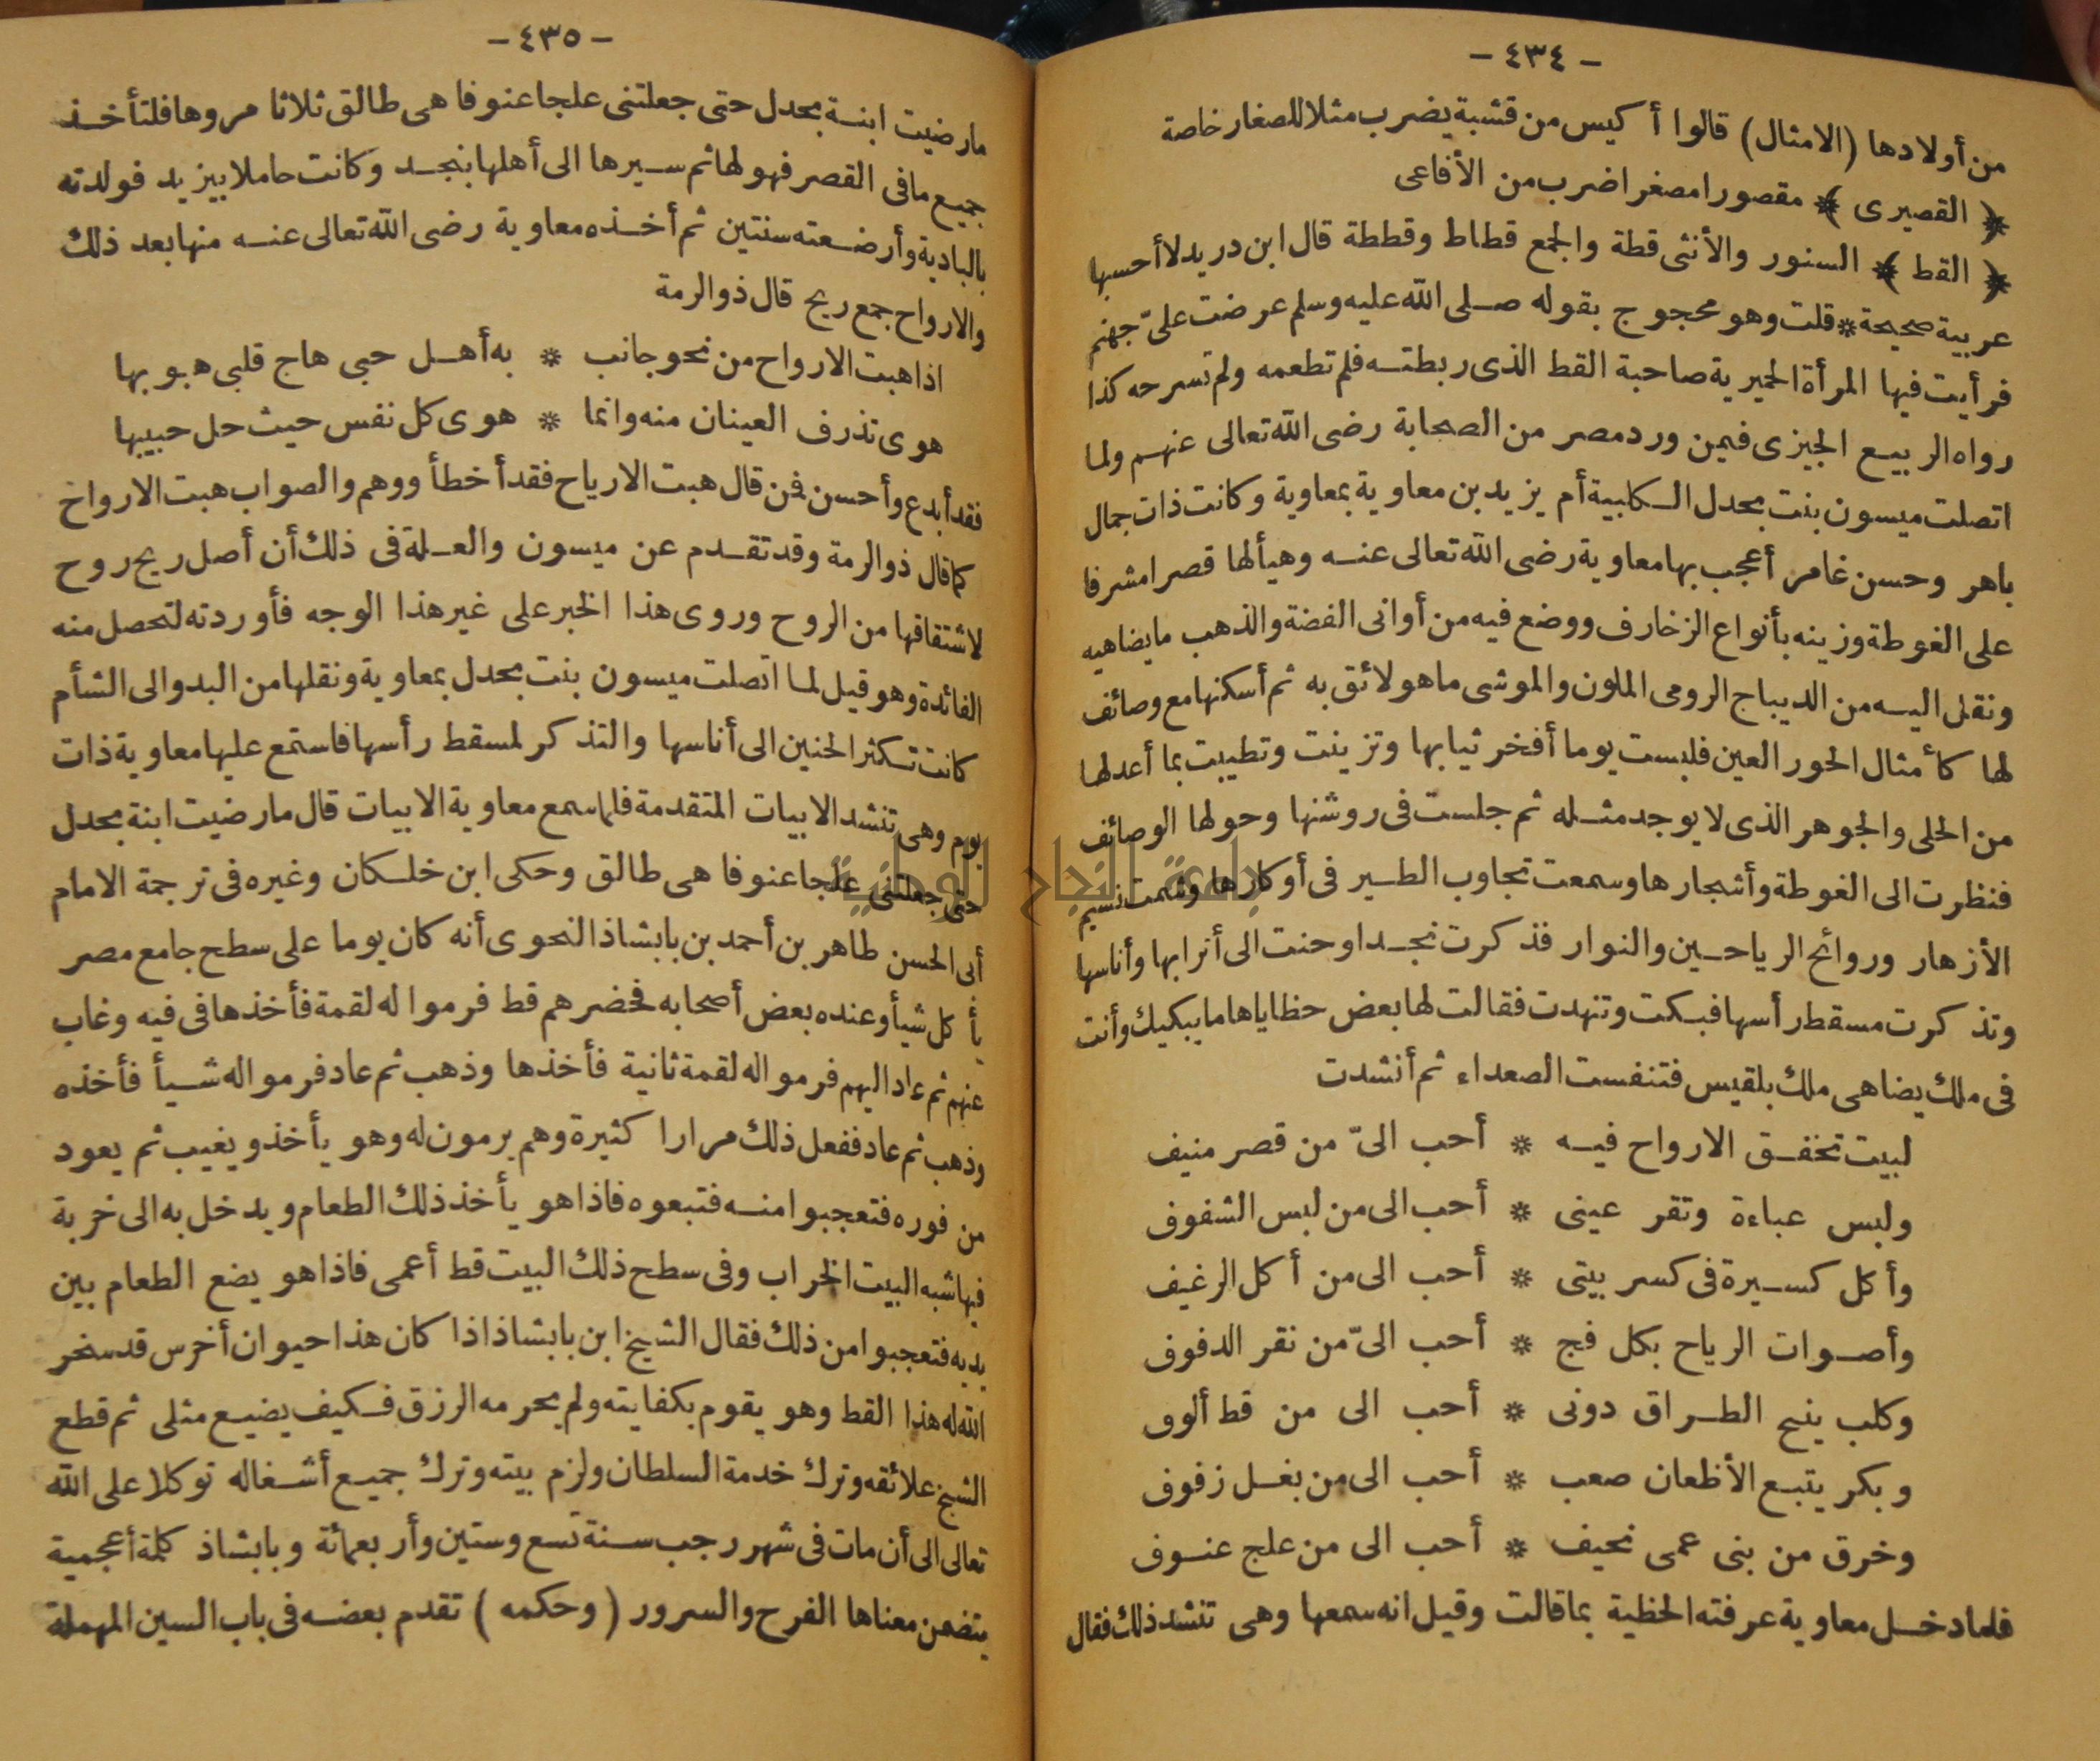 - ٤٣٤ -
من أولادها (الامثال) قالوا أكيس من قشبة يضرب مثلا للصغار خاصة
﴿ القصيرى ﴾ مقصورا مصغرا ضرب من الأفاعى
﴿ القط ﴾ السنور والأنثى قطة والجمع قطاط وقططة قال ابن دريد لا أحسبها
عربية صحيحة * قلت وهو محجوج بقوله صلى الله عليه وسلم عرضت علىّ جهنم
فرأيت فيها المرأة الحميرية صاحبة القط الذى ربطته فلم تطعمه ولم تسرحه كذا
رواه الربيع الجيزى فيمن ورد مصر من الصحابة رضى الله تعالى عنهم ولما
اتصلت ميسون بنت بحدل الكلبية أم يزيد بن معاوية بمعاوية وكانت ذات جمال
باهر وحسن غامر أعجب بها معاوية رضى الله تعالى عنه وهيأ لها قصرا مشرفا
على الغوطة وزينه بأنواع الزخارف ووضع فيه من أوانى الفضة والذهب ما يضاهيه
ونقل اليه من الديباج الرومى الملون والموشى ما هو لائق به ثم أسكنها مع وصائف
لها كأمثال الحور العين فلبست يوما أفخر ثيابها وتزينت وتطيبت بما أعد لها
من الحلى والجوهر الذى لا يوجد مثله ثم جلست فى روشنها وحولها الوصائف
فنظرت الى الغوطة وأشجارها وسمعت تجاوب الطير فى أوكارها وشمت نسيم
الأزهار وروائح الرياحين والنوار فذكرت نجدا وحنت الى أترابها وأناسها
وتذكرت مسقط رأسها فبكت وتنهدت فقالت لها بعض حظاياها ما يبكيك وأنت
فى ملك يضاهى ملك بلقيس فتنفست الصعداء ثم أنشدت
لبيت تخفق الارواح فيه * أحب الىّ من قصر منيف
ولبس عباءة وتقر عينى * أحب الى من لبس الشفوف
وأكل كسيرة فى كسر بيتى * أحب الى من أكل الرغيف
وأصوات الرياح بكل فج * أحب الىّ من نقر الدفوف
وكلب ينبح الطراق دونى * أحب الى من قط ألوف
وبكر يتبع الأظعان صعب * أحب الى من بغل زفوف
وخرق من بنى عمى نحيف * أحب الى من علج عنوف
فلما دخل معاوية عرفته الحظية بما قالت وقيل انه سمعها وهى تنشد ذلك فقال
- ٤٣٥ -
ما رضيت ابنة بحدل حتى جعلتنى علجا عنوفا هى طالق ثلاثا مروها فلتأخذ
جميع ما فى القصر فهو لها ثم سيرها الى أهلها بنجد وكانت حاملا بيزيد فولدته
بالبادية وأرضعته سنتين ثم أخذه معاوية رضى الله تعالى عنه منها بعد ذلك
والارواح جمع ريح قال ذو الرمة
اذا هبت الارواح من نحو جانب * به أهل حبى هاج قلبى هبوبها
هوى تذرف العينان منه وانما * هوى كل نفس حيث حل حبيبها
فقد أبدع وأحسن فمن قال هبت الارياح فقد أخطأ ووهم والصواب هبت الارواح
كما قال ذو الرمة وقد تقدم عن ميسون والعلة فى ذلك أن أصل ريح روح
لاشتقاقها من الروح وروى هذا الخبر على غير هذا الوجه فأوردته لتحصل منه
الفائدة وهو قيل لما اتصلت ميسون بنت بحدل بمعاوية ونقلها من البدو الى الشأم
كانت تكثر الحنين الى أناسها والتذكر لمسقط رأسها فاستمع عليها معاوية ذات
يوم وهى تنشد الابيات المتقدمة فلما سمع معاوية الابيات قال ما رضيت ابنة بحدل
حتى جعلتنى علجا عنوفا هى طالق وحكى ابن خلكان وغيره فى ترجمة الامام
أبى الحسن طاهر بن أحمد بن بابشاذ النحوى أنه كان يوما على سطح جامع مصر
يأكل شيأ وعنده بعض أصحابه فحضرهم قط فرموا له لقمة فأخذها فى فيه وغاب
عنهم ثم عاد اليهم فرموا له لقمة ثانية فأخذها وذهب ثم عاد فرموا له شيأ فأخذه
وذهب ثم عاد ففعل ذلك مرارا كثيرة وهم يرمون له وهو يأخذ ويغيب ثم يعود
من فوره فتعجبوا منه فتبعوه فاذا هو يأخذ ذلك الطعام ويدخل به الى خربة
فيها شبه البيت الخراب وفى سطح ذلك البيت قط أعمى فاذا هو يضع الطعام بين
يديه فتعجبوا من ذلك فقال الشيخ ابن بابشاذ اذا كان هذا حيوان أخرس قد سخر
الله له هذا القط وهو يقوم بكفايته ولم يحرمه الرزق فكيف يضيع مثلى ثم قطع
الشيخ علائقه وترك خدمة السلطان ولزم بيته وترك جميع أشغاله توكلا على الله
تعالى الى أن مات فى شهر رجب سنة تسع وستين وأربعمائة وبابشاذ كلمة أعجمية
يتضمن معناها الفرح والسرور (وحكمه) تقدم بعضه فى باب السين المهملة
جامعة النجاح الوطنية